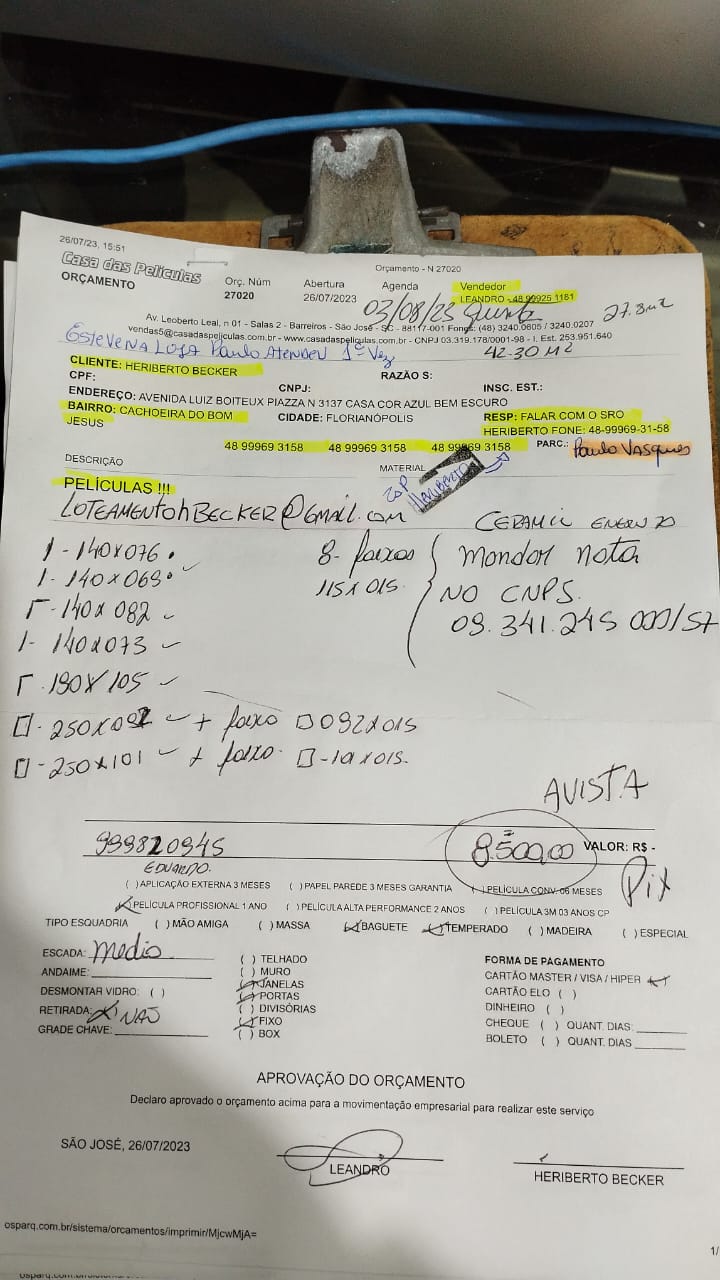 26/07/23, 15:51
Orçamento - N 27020
Casa das Películas
ORÇAMENTO
Orç. Núm
27020
Abertura
26/07/2023
Agenda
03/08/23 Quinta
Vendedor
LEANDRO - 48 99925 1161
27.3 m²
Av. Leoberto Leal, n 01 - Salas 2 - Barreiros - São José - SC - 88117-001 Fones: (48) 3240.0605 / 3240.0207
vendas5@casadaspeliculas.com.br - www.casadaspeliculas.com.br - CNPJ 03.319.178/0001-98 - I. Est. 253.951.640
ESTEVE NA LOJA Paulo ATENDEU 1º Vez
42.30 M²
CLIENTE: HERIBERTO BECKER
RAZÃO S:
CPF:
CNPJ:
INSC. EST.:
ENDEREÇO: AVENIDA LUIZ BOITEUX PIAZZA N 3137 CASA COR AZUL BEM ESCURO
BAIRRO: CACHOEIRA DO BOM JESUS
CIDADE: FLORIANÓPOLIS
RESP: FALAR COM O SRO HERIBERTO FONE: 48-99969-31-58
48 99969 3158 48 99969 3158 48 99969 3158
PARC.: Paulo VASQUES
DESCRIÇÃO
MATERIAL
HERIBERTO
PELÍCULAS !!!
LOTEAMENTOhBECKER@GMAIL.COM
CERAMIC ENERGY 70
1 - 140X076
1 - 140X069
140X082
1 - 140X073
190X105
8 - faixas
115X015
mandar nota
NO CNPJ.
09.341.245 000/57
250X092 + faixo 092X015
250X101 + faixo 101X015
AVISTA
999820945
EDUARDO.
8.500,00
VALOR: R$ -
Pix
( ) APLICAÇÃO EXTERNA 3 MESES ( ) PAPEL PAREDE 3 MESES GARANTIA ( ) PELÍCULA CONV. 06 MESES
(X) PELÍCULA PROFISSIONAL 1 ANO ( ) PELÍCULA ALTA PERFORMANCE 2 ANOS ( ) PELÍCULA 3M 03 ANOS CP
TIPO ESQUADRIA ( ) MÃO AMIGA ( ) MASSA (X) BAGUETE (X) TEMPERADO ( ) MADEIRA ( ) ESPECIAL
ESCADA: Medio
ANDAIME:
DESMONTAR VIDRO: ( )
RETIRADA: (X) NÃO
GRADE CHAVE:
( ) TELHADO
( ) MURO
(X) JANELAS
(X) PORTAS
( ) DIVISÓRIAS
(X) FIXO
( ) BOX
FORMA DE PAGAMENTO
CARTÃO MASTER / VISA / HIPER (X)
CARTÃO ELO ( )
DINHEIRO ( )
CHEQUE ( ) QUANT. DIAS:
BOLETO ( ) QUANT. DIAS
APROVAÇÃO DO ORÇAMENTO
Declaro aprovado o orçamento acima para a movimentação empresarial para realizar este serviço
SÃO JOSÉ, 26/07/2023
LEANDRO
HERIBERTO BECKER
osparq.com.br/sistema/orcamentos/imprimir/MjcwMjA=
1/